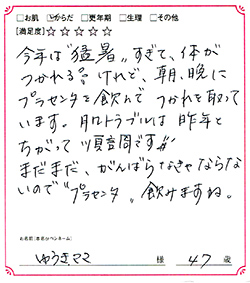 □お肌 ☑からだ □更年期 □生理 □その他
[満足度]☆☆☆☆☆
今年は"猛暑"すぎて、体が
つかれる。けれど、朝、晩に
プラセンタを飲んで つかれを取って
います。肌トラブルは昨年と
ちがって "順調です"
まだまだ、がんばらなきゃならな
いので"プラセンタ"飲みますね。
お名前(本名かペンネーム)
ゆうきママ 様 47 歳